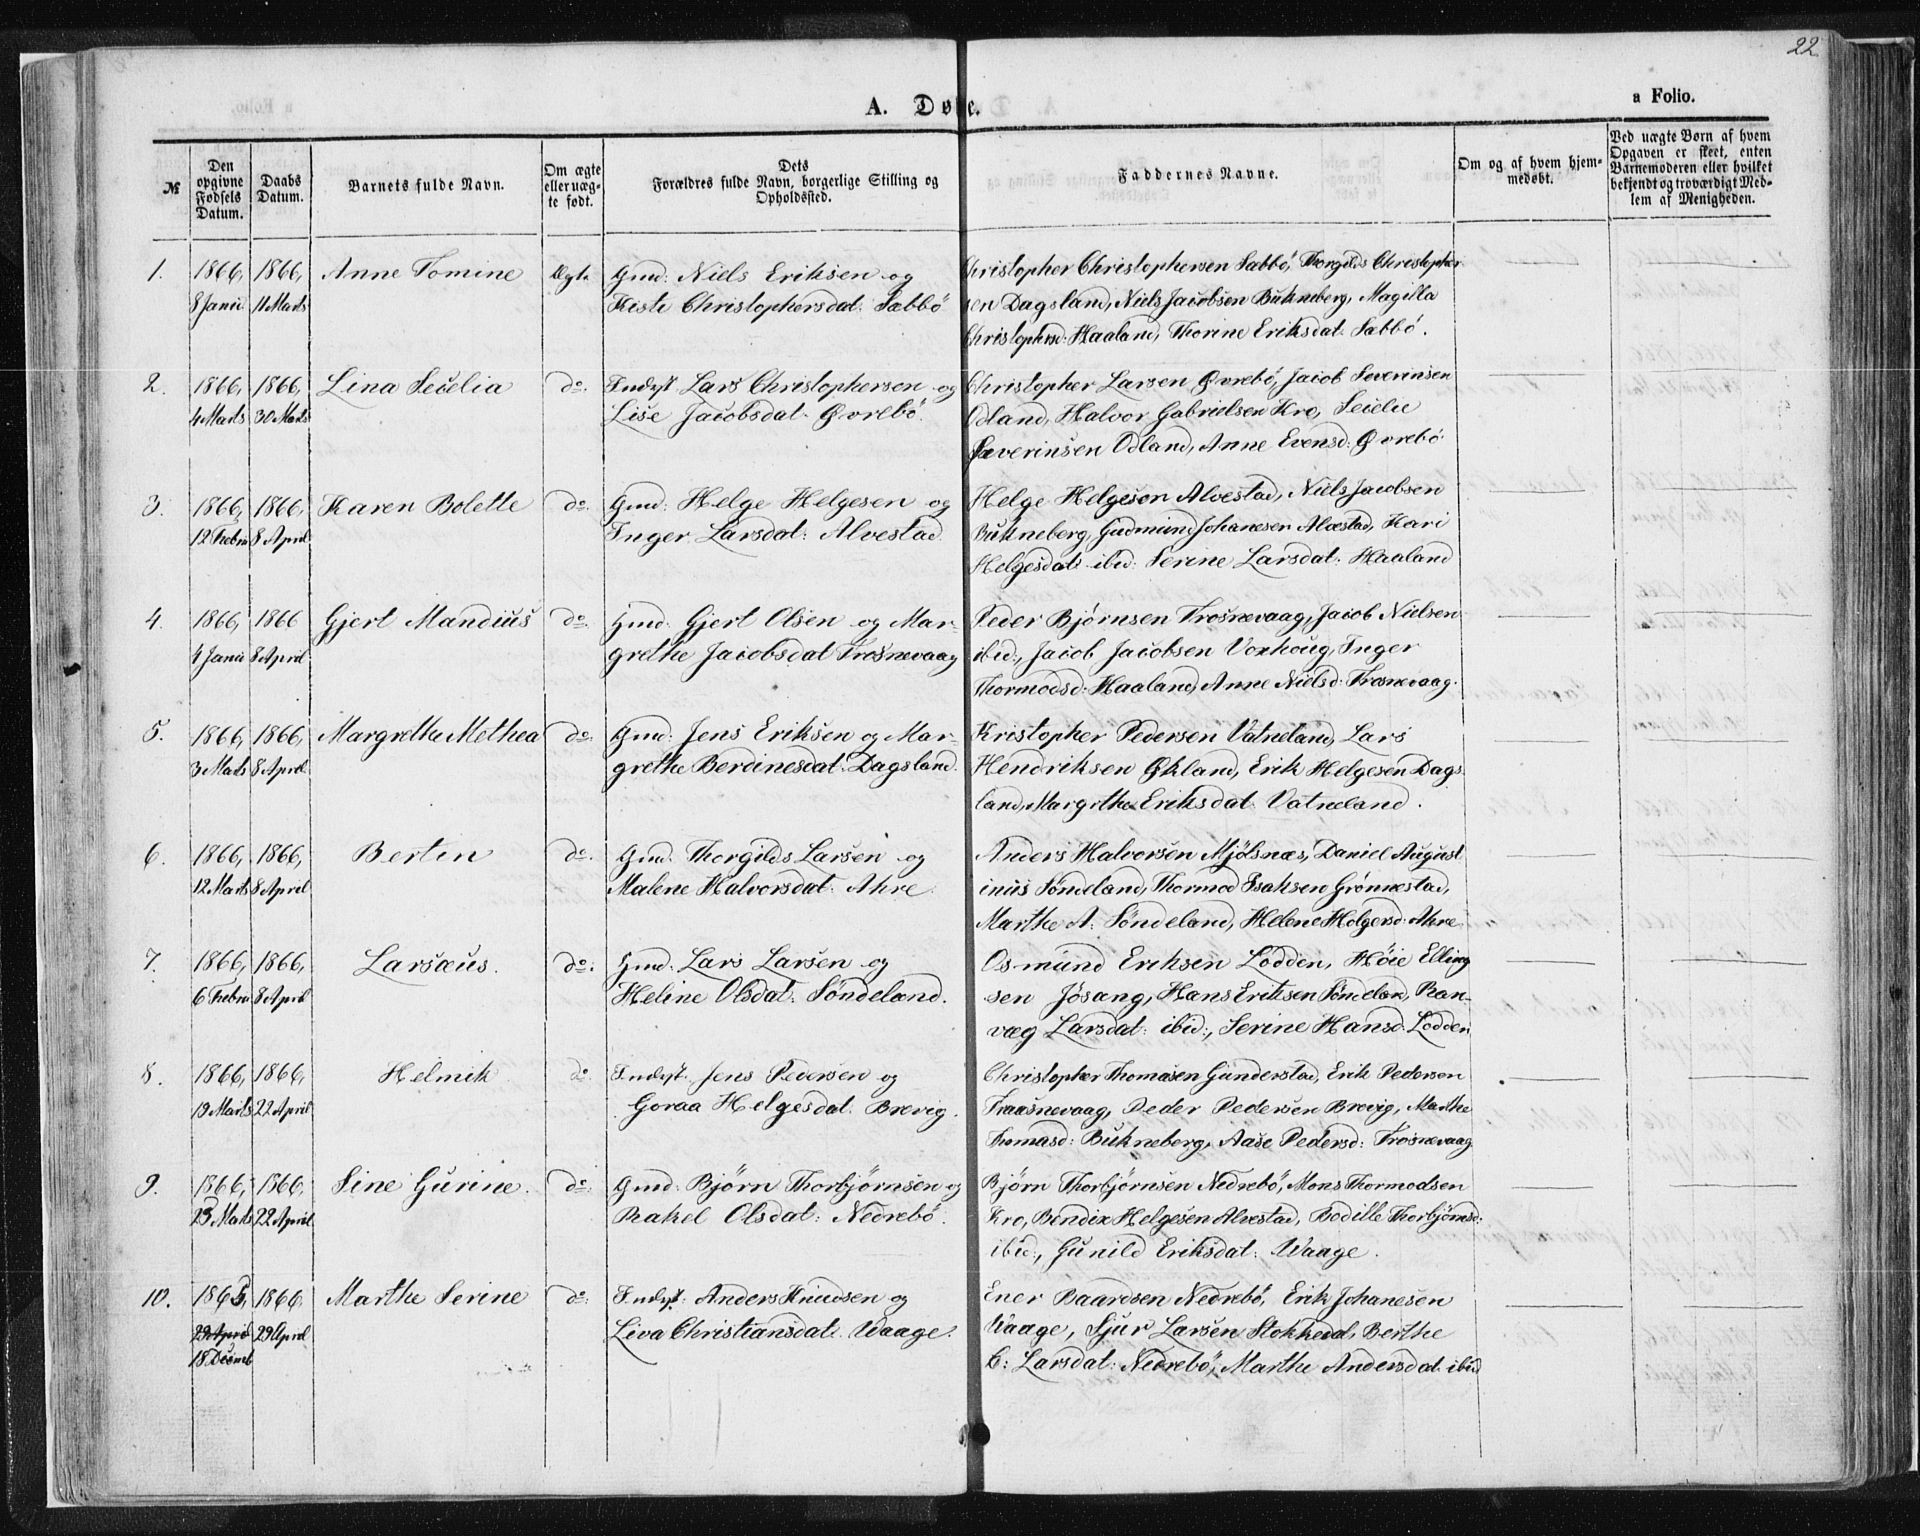 22
A. Døbe.
a Folio.
№
Den opgivne Fødsels Datum.
Daabs Datum.
Barnets fulde Navn.
Om ægte eller uægte født.
Dets Forældres fulde Navn, borgerlige Stilling og Opholdssted.
Faddernes Navne.
Om og af hvem hjemmedøbt.
Ved uægte Børn af hvem Opgaven er skeet, enten Barnemoderen eller hvilket bekjendt og troværdigt Medlem af Menigheden.
1. 1866, 1866, Anne Tomine Ægte Gmd: Niels Eriksen og Christopher Christophersen Sæbbö, Thorgilds Christopher-
8 Janu 11 Marts Kisti Christophersdat: Sæbbö sen Dagsland, Niels Jacobsen Bukneberg, Magilla
Christophsd: Haaland, Thorine Eriksdat: Sæbbö.
2. 1866, 1866, Lina Secelia do. Indyst Lars Christophersen og Christopher Larsen Øvrebö, Jacob Severinsen
4 Marts 30 Marts Lise Jacobsdat: Øvrebö. Odland, Halvor Gabrielsen Kro, Seielie
Severinsen Odland, Anne Evensd: Øvrebö
3. 1866, 1866, Karen Bolette do. Gmd: Helge Helgesen og Helge Helgeson Alvestad, Niels Jacobsen
12 Febru 8 April Inger Larsdat: Alvestad. Bukneberg, Gudmund Johanesen Alvestad, Kari
Helgesdat: ibid: Serine Larsdat: Haaland
4. 1866, 1866 Gjert Mandius do. Gmd: Gjert Olsen og Mar- Peder Bjørnsen Trosnevaag, Jacob Nielsen
4 Janu 8 April grethe Jacobsdat Trosnevaag ibid:, Jacob Jacobsen Voxhoug, Inger
Thormodsd: Haaland, Anne Nielsd: Trosnevaag.
5. 1866, 1866, Margrethe Methea do. Gmd: Jens Eriksen og Mar- Kristopher Pedersen Vatneland, Lars
3 Marts 8 April grethe Berdinesdat: Dagsland. Hendriksen Økland, Erik Helgesen Dags-
land, Margrthe Eriksdat: Vatneland.
6. 1866, 1866, Bertin do. Gmd: Thorgilds Larsen og Anders Halvorsen Mjølsnæs, Daniel August
12 Marts 8 April Malene Halvorsdat: Ahre inus Söndeland, Thormod Isaksen Grönnestad,
Marthe A: Söndeland, Helene Holgersd: Ahre
7. 1866, 1866, Larsæus. do. Gmd: Lars Larsen og Osmund Eriksen Lodden, Höie Elling
6 Febru 8 April Heline Olsdat: Söndeland. sen Jösang, Hans Eriksen Söndelan, Ran-
væg Larsdat: ibid:, Serine Hansd: Lodden
8. 1866, 1866, Helmik do. Indyst. Jens Pedersen og Christopher Thomasen Gunderstad, Erik Pedersen
19 Marts 22 April Goraa Helgesdat: Brevig. Traasnevaag, Peder Pedersen Brevig, Marthe
Thomasd: Bukneberg, Aase Pedersd: Trosnevaag
9. 1866, 1866, Sine Gurine. do. Gmd: Bjørn Thorbjørnsen og Bjørn Thorbjørnsen Nedrebö, Mons Thormodsen
23 Marts 22 April Rakel Olsdat: Nedrebö. Kro, Bendix Helgesen Alvestad, Bodille Thorbjørnsd:
ibid:, Gunild Eriksdat: Waage.
10. 1865, 1866, Marthe Serine do. Indyst: Anders Knudsen og Ener Baardsen Nedrebö, Erik Johanesen
29 April 29 April Liva Christiansdat: Waage. Waage, Sjur Larsen Stokkedal, Berthe
18 Decmb B: Larsdat: Nedrebö, Marthe Andersdat: ibid